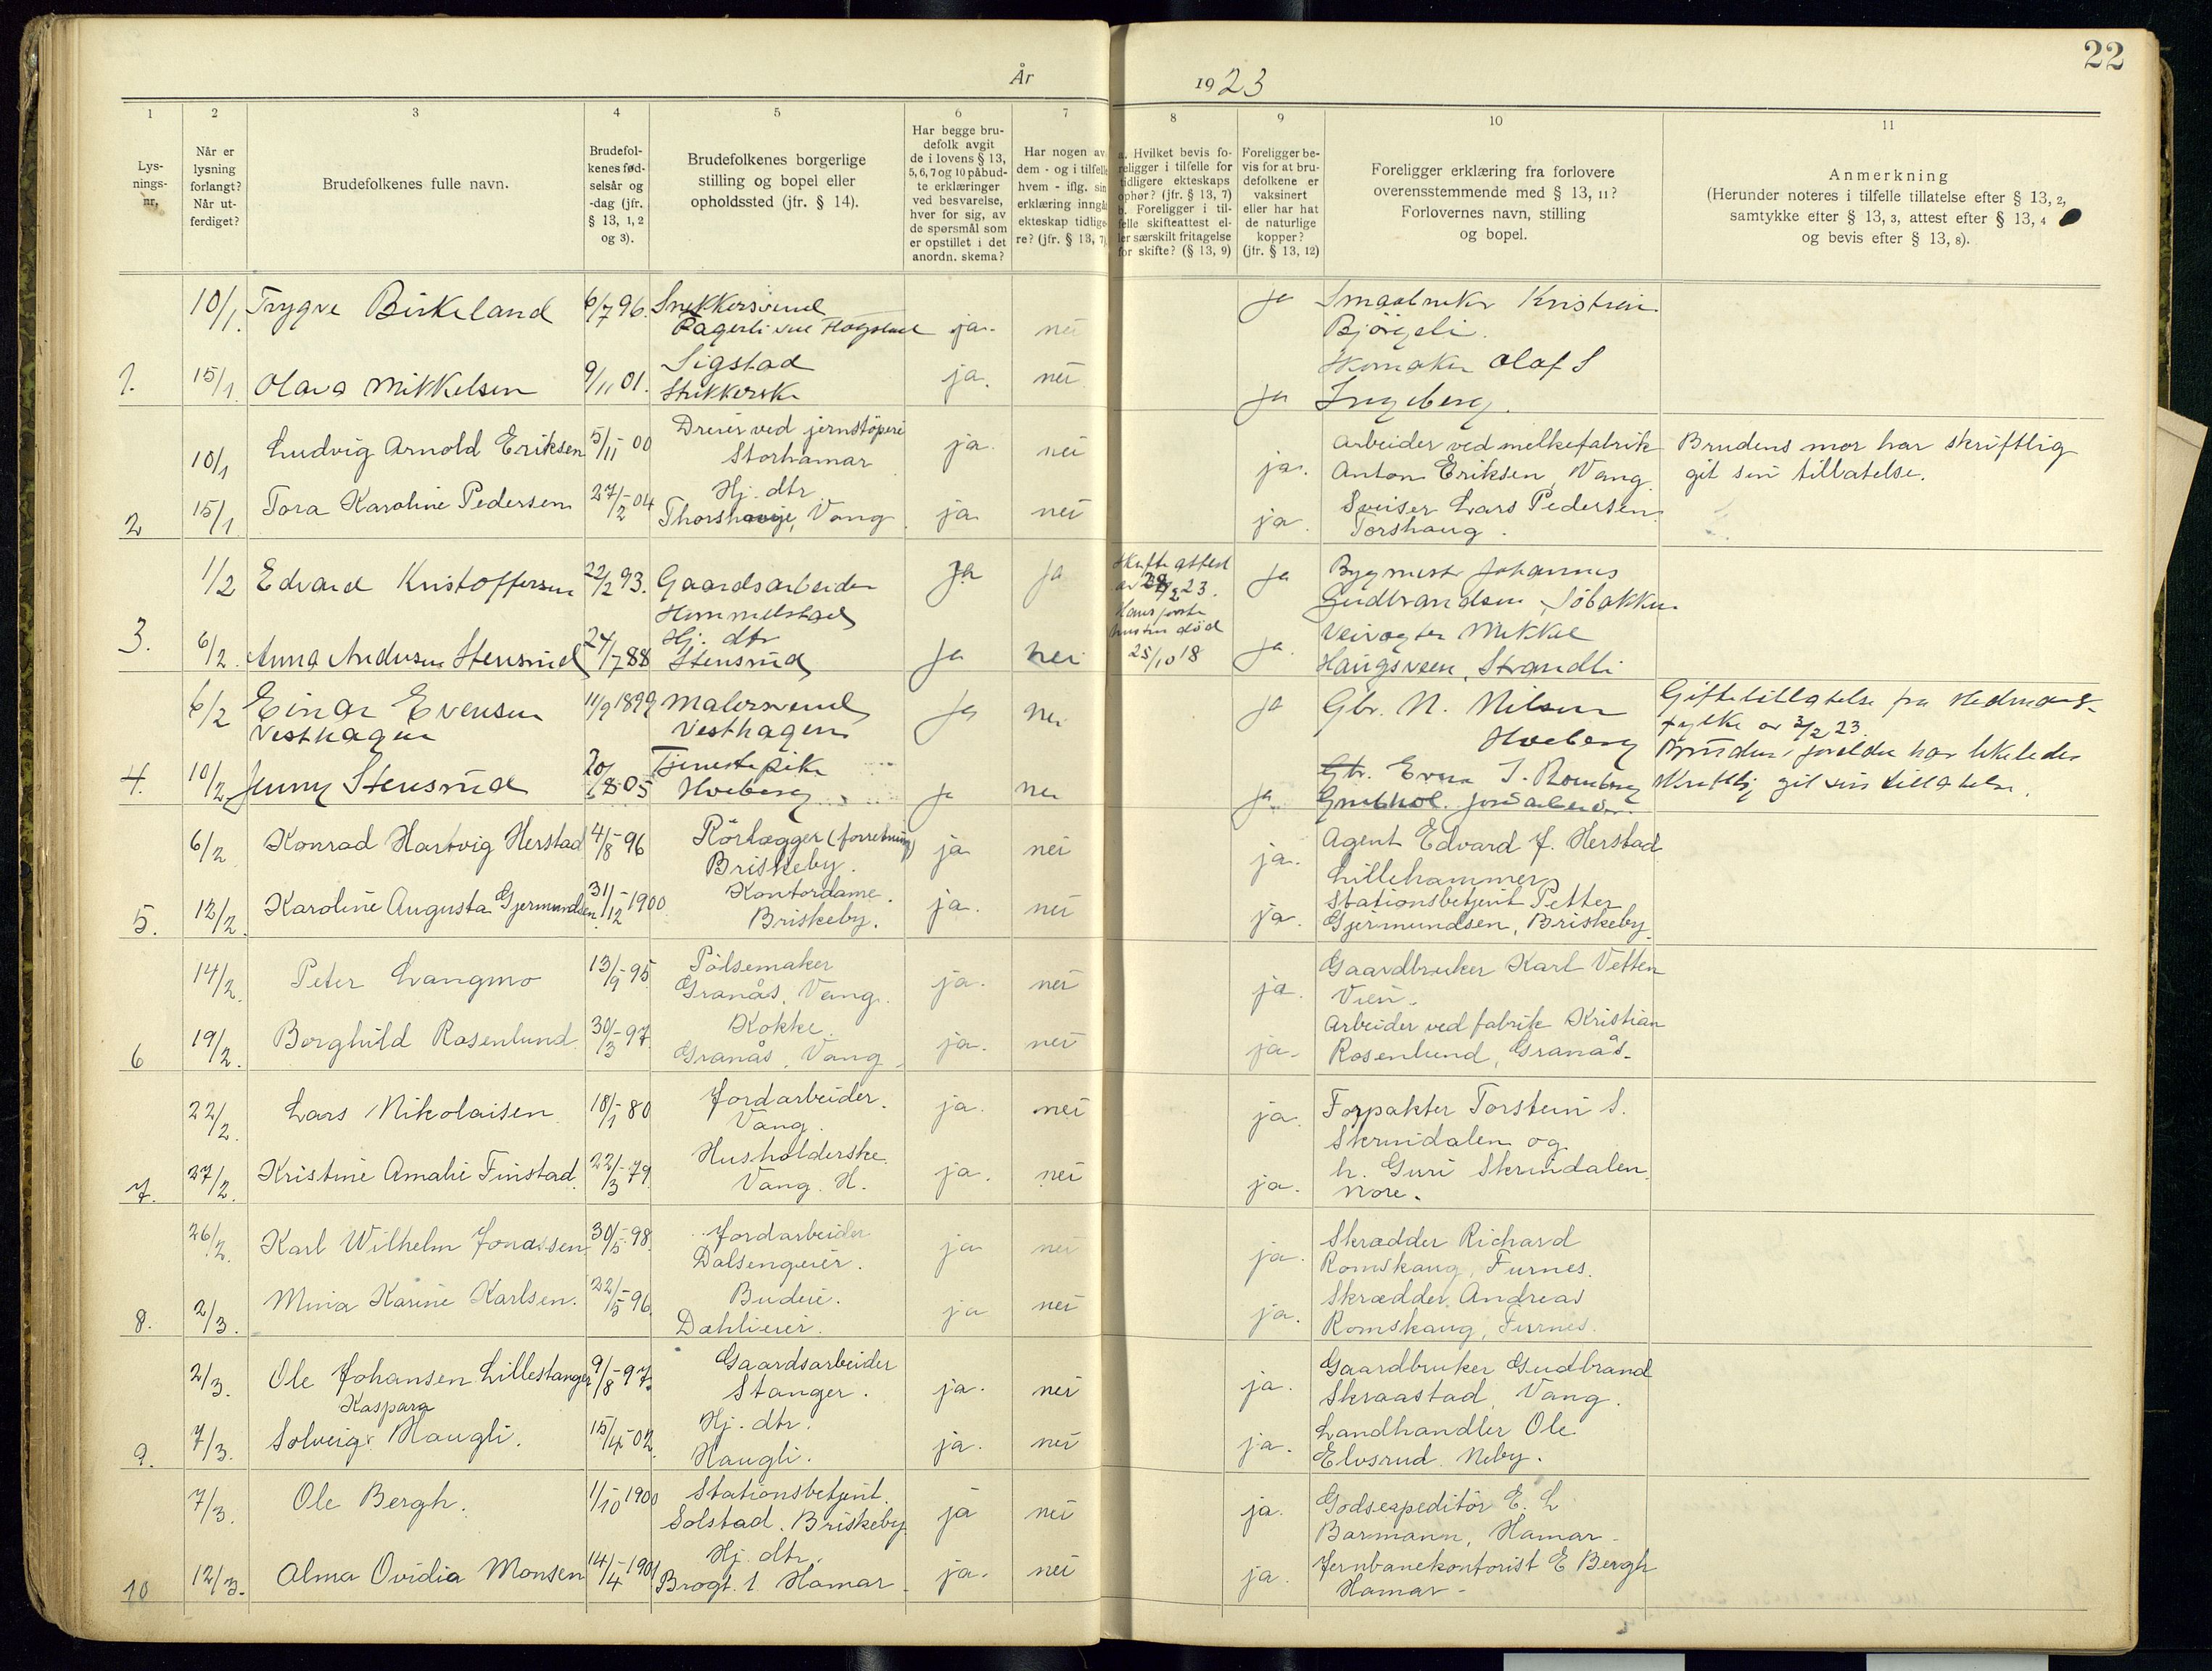 22
År 1923
1 2 3 4 5 6 7 8 9 10 11
Lys-
nings-
nr.
Når er
lysning
forlangt?
Når ut-
ferdiget?
Brudefolkenes fulle navn.
Brudefol-
kenes fød-
selsår og
-dag (jfr.
§ 13, 1, 2
og 3).
Brudefolkenes borgerlige
stilling og bopel eller
opholdssted (jfr. § 14).
Har begge bru-
defolk avgit
de i lovens § 13,
5, 6, 7 og 10 påbud-
te erklæringer
ved besvarelse,
hver for sig, av
de spørsmål som
er opstillet i det
anordn. skema?
Har nogen av
dem - og i tilfelle
hvem - iflg. sin
erklæring inngåt
ekteskap tidlige-
re? (jfr. § 13, 7)
a. Hvilket bevis fo-
religger i tilfelle for
tidligere ekteskaps
ophør? (jfr. § 13, 7)
b. Foreligger i til-
felle skifteattest el-
ler særskilt fritagelse
for skifte? (§ 13, 9)
Foreligger be-
vis for at bru-
defolkene er
vaksinert
eller har hat
de naturlige
kopper?
(jfr. § 13, 12)
Foreligger erklæring fra forlovere
overensstemmende med § 13, 11?
Forlovernes navn, stilling
og bopel.
Anmerkning
(Herunder noteres i tilfelle tillatelse efter § 13, 2,
samtykke efter § 13, 3, attest efter § 13, 4
og bevis efter § 13, 8).
10/1. Trygve Birkeland 6/7 96. Snekkersvend ja. nei ja Smaabruker Kristian
Bjørgeli.
1. 15/1. Olava Mikkelsen 9/11 01. Sigstad ja. nei ja Skomaker Olaf S
Strikkerske
Ingeberg.
10/1 Ludvig Arnold Eriksen 5/11-00 Dreier ved jernstöperi ja. nei ja. Arbeider ved melkefabrik Brudens mor har skriftlig
Storhamar Anton Eriksen, Vang. git sin tillatelse.
2 15/1 Tora Karoline Pedersen 27/2-04 Hj. dtr. ja nei ja. Sveiser Lars Pedersen
Vang Torshaug.
1/2 Edvard Kristoffersen 22/2 93. Gaardsarbeider ja ja Skifteattest ja Bygmester Johannes
Hommelstad av 23. Gudbrandsen
Hans første
hustru død
25/10 18
3. 6/2. Anna Andersen Stensrud 24/7 88 Hj. dtr ja nei ja. Veivogter Mikkel
Stensrud Haugsveen, Strandli
6/2 Einar Evensen 11/9 1899 Malersvend ja nei ja Gbr. N. Nilsen Giftetillatelse fra Hedmark
Vesthagen Vesthagen Hoeberg fylke av 3/2 23.
4. 10/2 Jenny Stensrud 20/8 05 Tjenestepike ja nei ja Gbr. Even J. Romberg Brudens foreldre har likeledes
Hoeberg skriftlig git sin tillatelse.
6/2 Konrad Hartvig Herstad 4/8-96 Rörlægger (forretning) ja nei ja. Agent Edvard J. Herstad
Briskeby. Lillehammer
5. 12/2. Karoline Augusta Gjermundsen 31/12-1900 Kontordame. ja. nei ja. Stationsbetjent Petter
Briskeby. Gjermundsen, Briskeby.
14/2. Peter Langmo 13/9-95 Pölsemaker ja. nei ja. Gaardbruker Karl Vetten
Granås, Vang. Vien.
6 19/2. Borghild Rosenlund 30/3-97. Kokke. ja. nei ja. Arbeider ved fabrik Kristian
Granås, Vang Rosenlund, Granås.
22/2. Lars Nikolaisen 18/1-80 Jordarbeider. ja. nei ja. Forpakter Torstein S.
Vang. Skrindalen og
7. 27/2. Kristine Amalie Finstad. 22/3-79. Husholderske. ja. nei ja. h. Guri Skrindalen,
Vang. H. Nore.
26/2. Karl Wilhelm Jonassen 30/5-98. Jordarbeider ja nei ja. Skrædder Richard
Dalsengeier. Romskaug, Furnes.
8. 2/3. Mina Karine Karlsen. 22/5-96. Budeie. ja nei ja. Skrædder Andreas
Dahlieier. Romskaug, Furnes.
2/3. Ole Johansen Lillestanger 9/8-97. Gaardsarbeider ja. nei ja. Gaardbruker Gudbrand
Stanger. Skraastad, Vang.
Kaspara
9. 7/3. Solveig Haugli. 15/4-02. Hj. dtr. ja. nei ja. Landhandler Ole
Haugli. Elvsrud Neby.
7/3. Ole Bergh. 1/10-1900 Stationsbetjent. ja nei ja. Godsexpeditör E. L
Solstad. Briskeby. Barmann, Hamar.
10 12/3. Alma Ovidia Monsen 14/4-1901 Hj. dtr. ja. nei ja. Jernbanekontorist E Bergh
Brogt. 1 Hamar. Hamar.